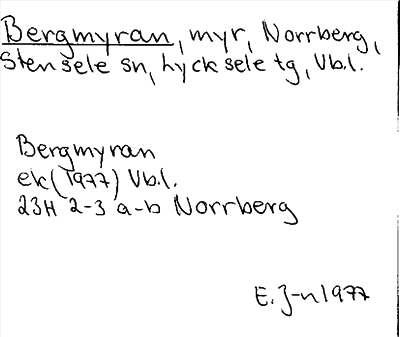 Bergmyran, myr, Norrberg,
Stensele sn, Lycksele tg, Vb.l.
Bergmyran
ek (1977) Vb.l.
23H 2-3 a-b Norrberg
E. J-n 1977